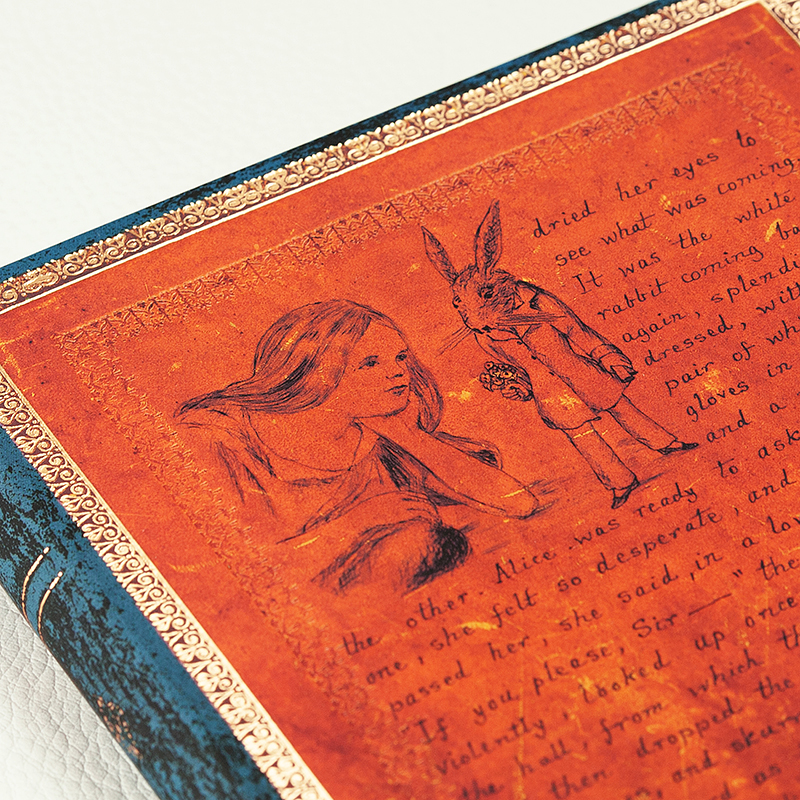 dried her eyes to
see what was coming.
It was the white
rabbit coming
again,
dressed, with
pair of
gloves in
and a
the other. Alice was ready to ask
one, she felt so desperate, and
passed her, she said, in a
If you please, Sir — "
violently, looked up once
the hall, from which
then dropped the
and
as